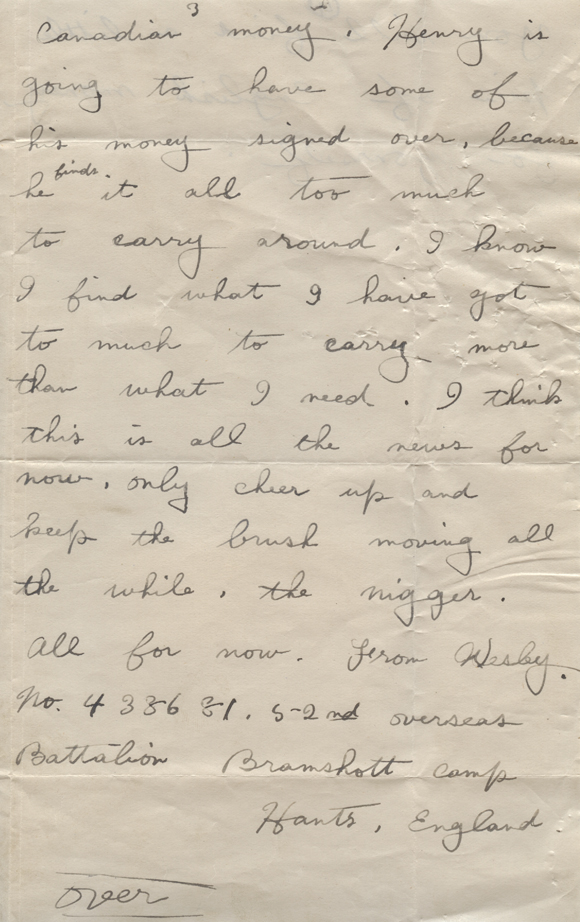 3
Canadian money. Henry is
going to have some of
his money signed over, because
he finds it all too much
to carry around. I know
I find what I have got
to much to carry more
than what I need. I think
this is all the news for
now, only cheer up and
keep the brush moving all
the while, the nigger.
All for now. From Wesby.
No. 4 336 31. 52nd overseas
Battalion Bramshott camp
Hants, England.
over